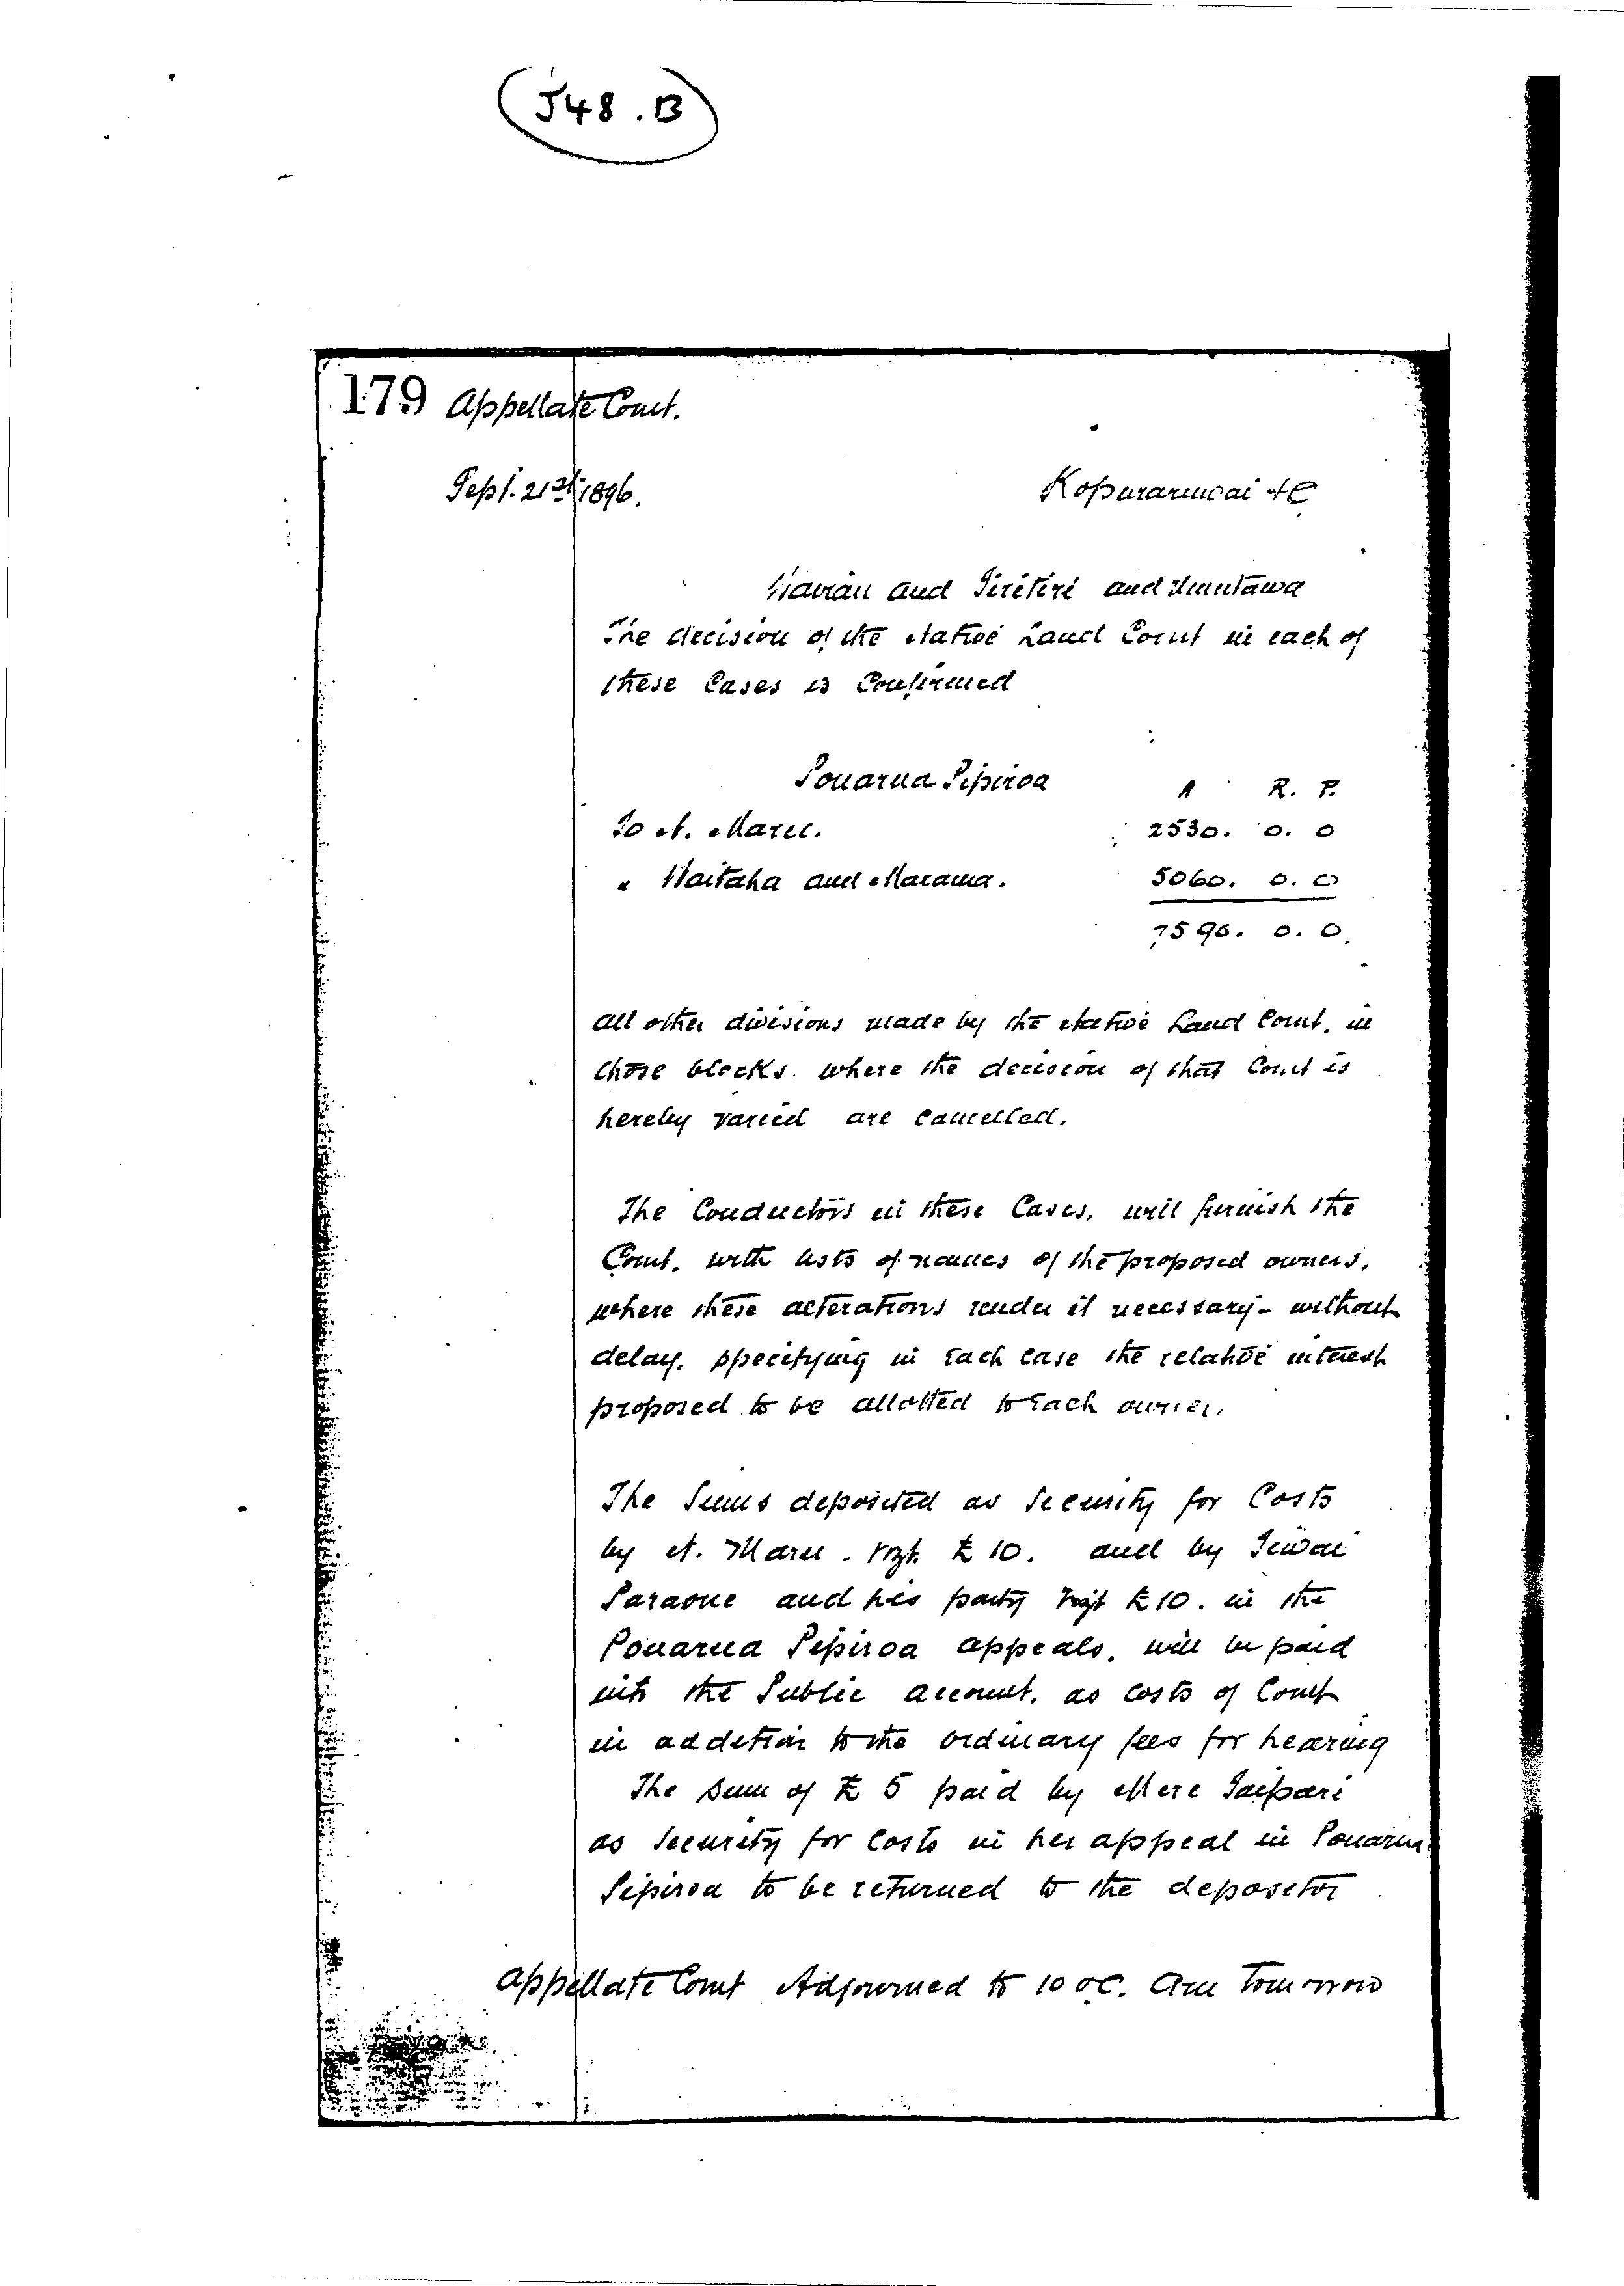 J48.B
179 Appellate Court.
Sept. 21st 1896. Kopuraruwai &c
Wairau and Tiritiri and
The decision of the Native Land Court in each of
these Cases is Confirmed
Pouarua Pipiroa A R. P.
To N. Maru. 2530. 0. 0
" Waitaha and Marama. 5060. 0. 0
7590. 0. 0.
All other divisions made by the Native Land Court, in
those blocks, where the decision of that Court is
hereby varied are cancelled.
The Conductors in these Cases, will furnish the
Court, with lists of names of the proposed owners,
where these alterations render it necessary - without
delay, specifying in each case the relative interest
proposed to be allotted to each owner.
The Sums deposited as Security for Costs
by N. Maru. vizt. £10. and by Tiwai
Paraone and his party vizt £10. in the
Pouarua Pipiroa appeals, will be paid
into the Public account, as costs of Court
in addition to the ordinary fees for hearing
The sum of £5 paid by Mere Taipari
as Security for Costs in her appeal in Pouarua
Pipiroa to be returned to the depositor
Appellate Court Adjourned to 10 oC. am Tomorrow